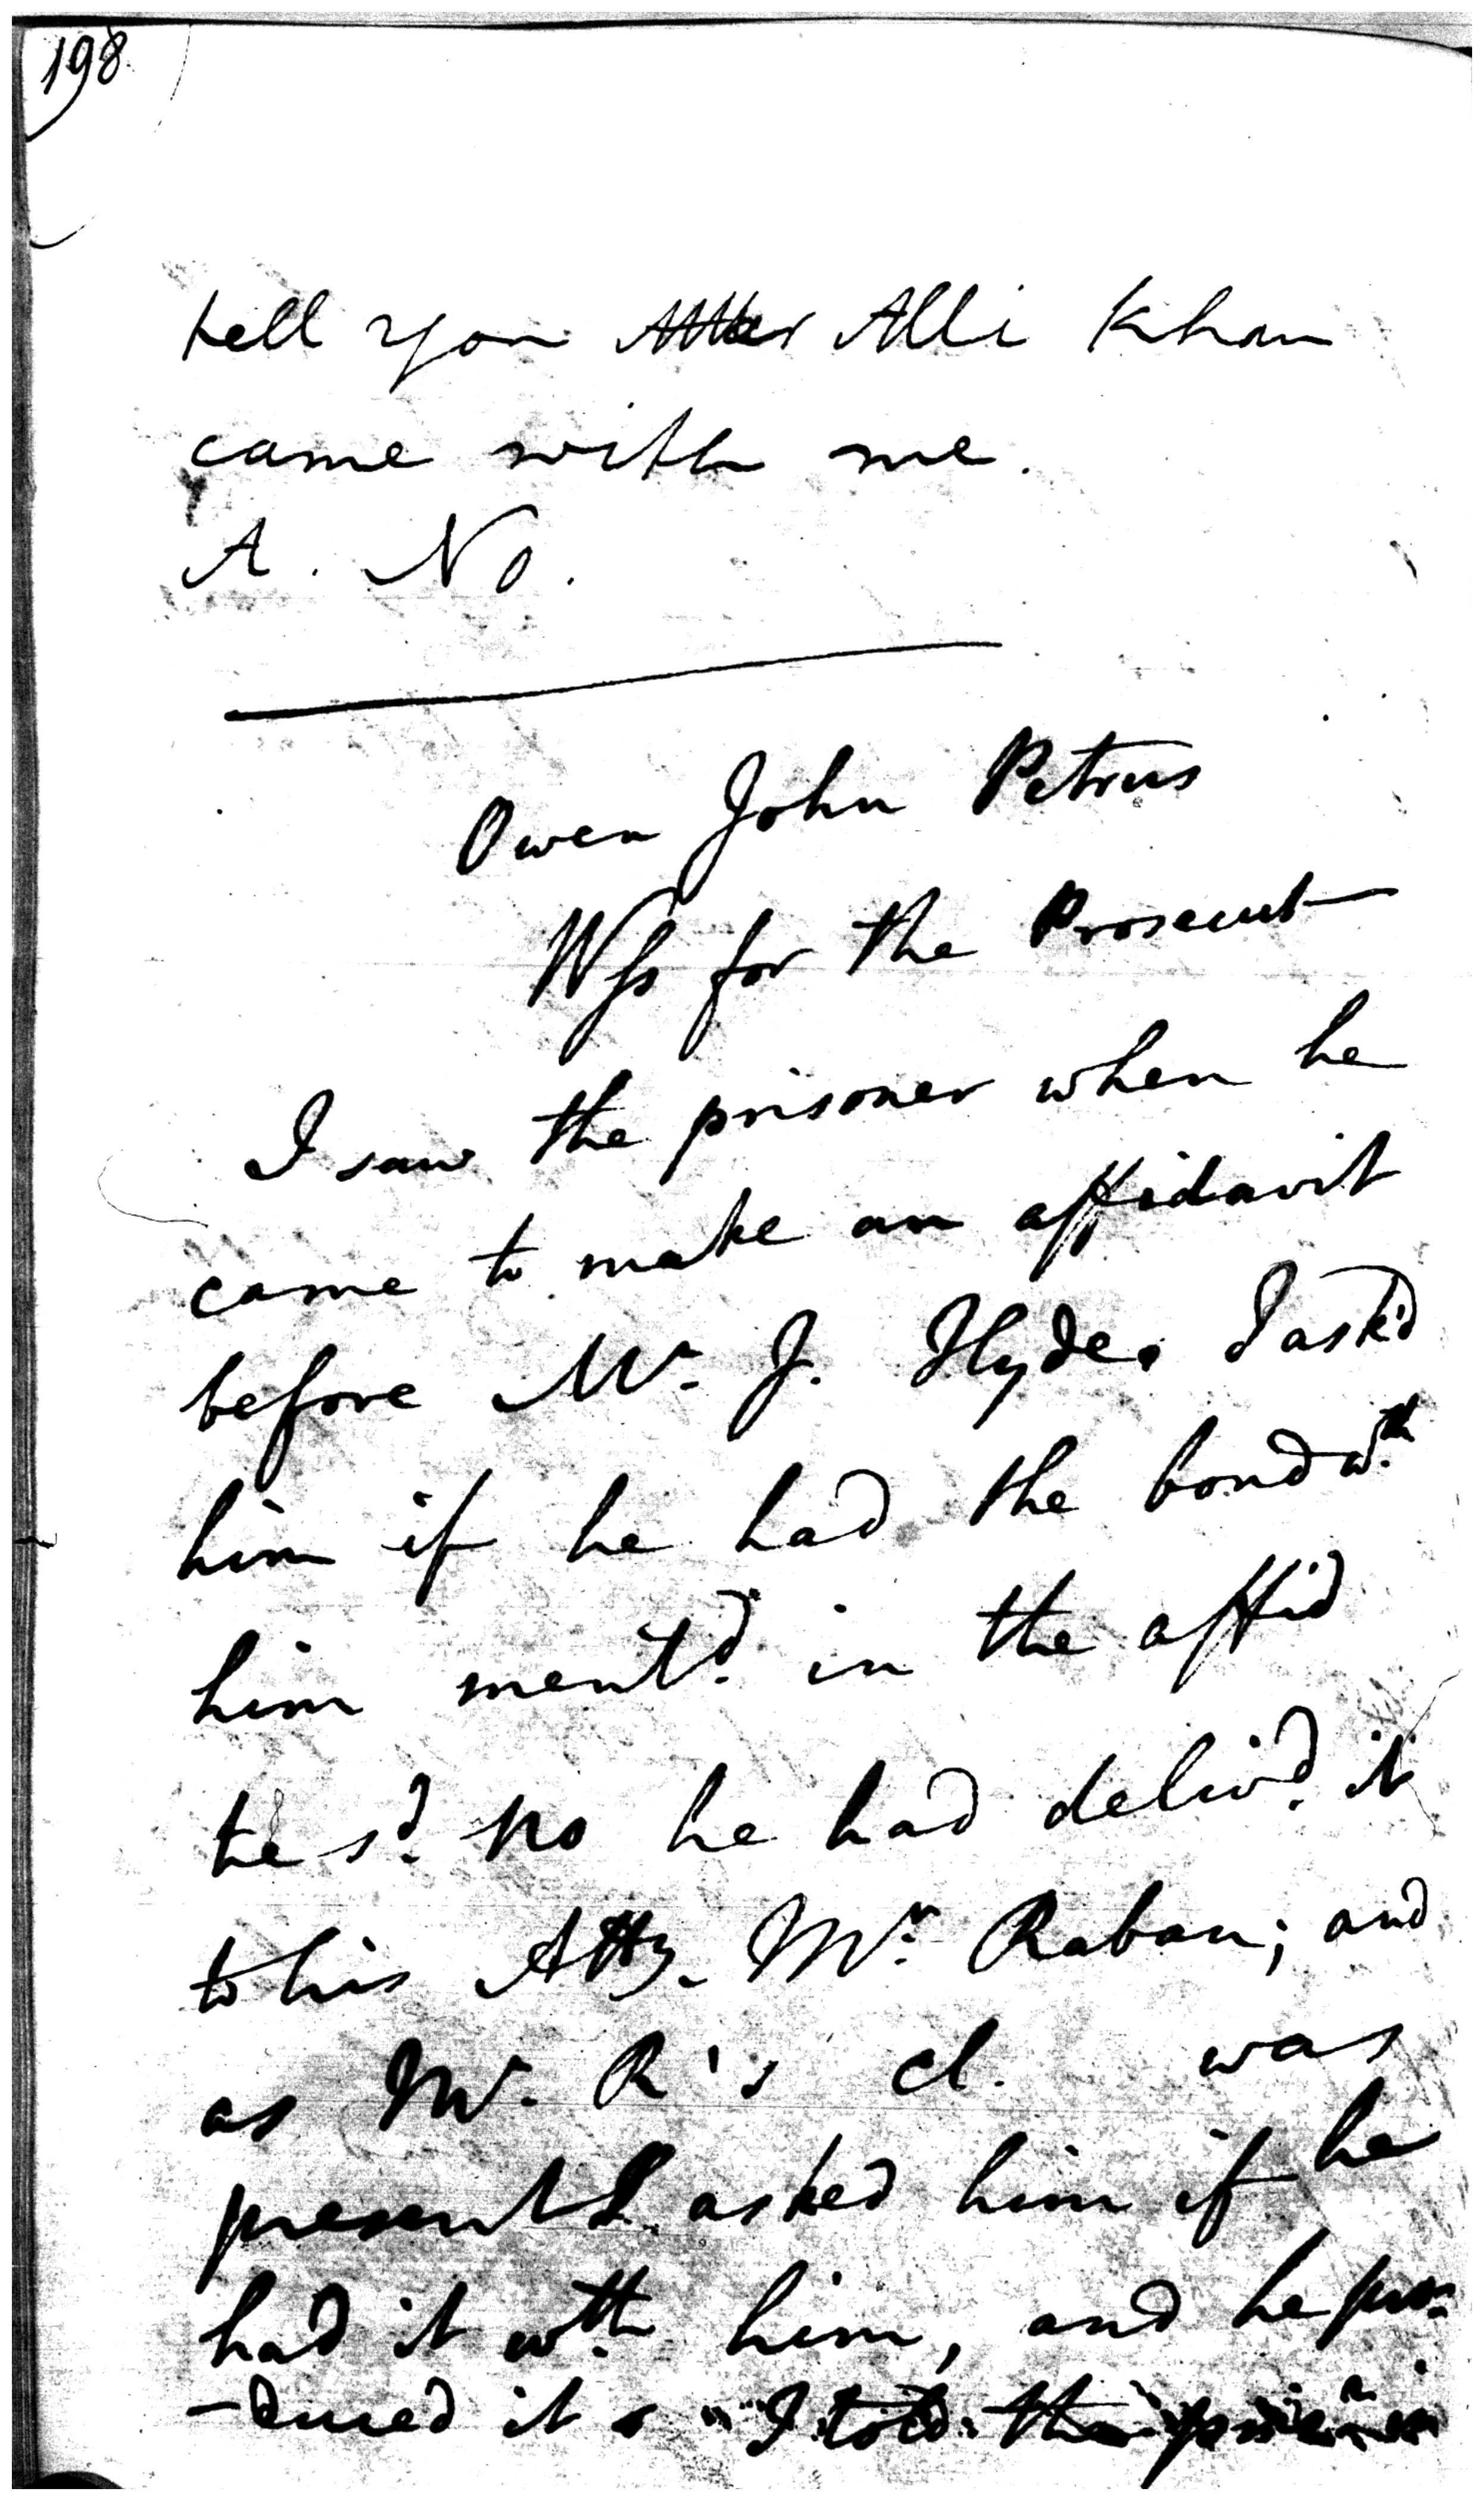 198
tell you Alli Khan
came with me.
A. No.
Owen John Petrus
Wss for the Prosecut
I saw the prisoner when he
came to make an affidavit
before Mr. J. Hyde. I ask'd
him if he had the bond wth
him ment'd in the affid
he sd. no he had deliv'd it
to his Atty. Mr. Raban; and
as Mr. R's cl. was
present I asked him if he
had it wth him, and he pro-
-duced it I told the